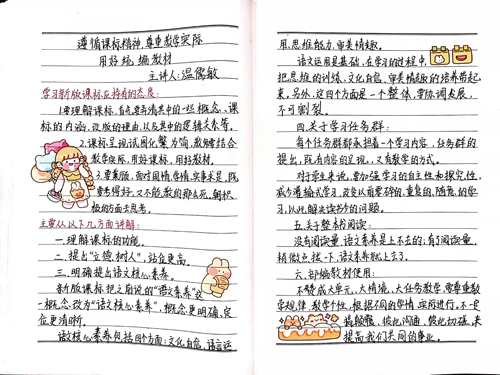 遵循课标精神,尊重教学实际
用好统编教材
主讲人:温儒敏
学习新版课标应持有的态度:
1.要理解课标,首先要弄清其中的一些概念、课
标的内涵,改版的理由,以及其中的逻辑关系等。
2.课标呈现试图化繁为简,教师要结合
教学实际,用好课标,用好教材。
3.要实际,面对国情、学情,实事求是,既
要考得好,又不能教的那么死。朝积
极的方向去思考。
主要从以下几方面讲解:
一.理解课标的功能。
二.提出"立德树人",站位更高。
三.明确提出语文核心素养。
新版课标把之前说的"语文素养"这
一概念,改为"语文核心素养",概念更明确,定
位更清晰。
语文核心素养包括四个方面:文化自信,语言运
用、思维能力、审美情趣。
语文运用是基础,在学习的过程中,
把思维的训练、文化自信、审美情趣的培养带起
来。另外,这四个方面是一个整体,要协调发展,
不可割裂。
四.关于学习任务群:
每个任务群都承担着一个学习内容,任务群的
提出,既有内容的呈现,又有教学的方式。
对于学生来说,要加强学习的自主性和探究性,
减少灌输式学习,改变以前零碎的、重复的、随意的学
习,以此解决读书少的问题。
五.关于整本书阅读:
没有阅读量,语文素养是上不去的;有了阅读量,
稍微点拨一下,语文素养就上去了。
六.部编教材使用:
不赞成大单元,大情境,大任务教学,要尊重教
学规律,教学个性,根据不同的学情,实际进行。不一定
搞频繁,彼此沟通,彼此切磋,来
提高我们共同的事业。